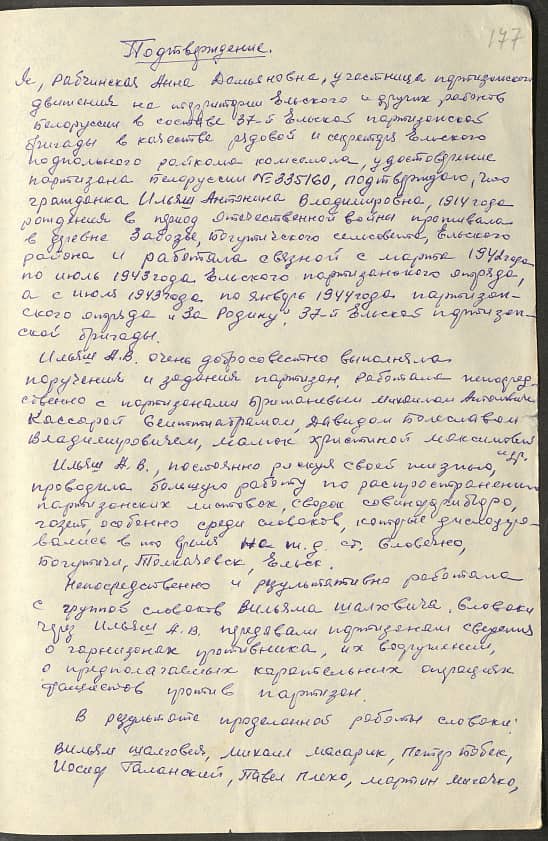 177
Подтверждение.
Я, Рабчинская Анна Домьяновна, участница партизанского
движения на территории Ельского и других районов
Белоруссии в составе 37-й Ельской партизанской
бригады в качестве рядовой и секретаря Ельского
подпольного райкома комсомола, удостоверение
партизана Белоруссии № 335160, подтверждаю, что
гражданка Ильяш Антонина Владимировна, 1914 года
рождения в период Отечественной войны проживала
в деревне Забозье, Богутичского сельсовета, Ельского
района и работала связной с марта 1942 года
по июль 1943 года Ельского партизанского отряда,
а с июля 1943 года по январь 1944 года партизан-
ского отряда "За Родину", 37-й Ельской партизан-
ской бригады.
Ильяш А.В. очень добросовестно выполняла
поручения и задания партизан. Работала непосред-
ственно с партизанами Михаилом Антоновичем
Кассарой Давидом Болеславом
Владимировичем, Малюк Христиной Максимовной
и др.
Ильяш А.В., постоянно рискуя своей жизнью,
проводила большую работу по распространению
партизанских листовок, сводок совинформбюро,
газет, особенно среди словаков, которые дислоциро-
вались в то время на ж.д. ст. Словечно,
Богутичи, Ельск.
Непосредственно и результативно работала
с группой словаков Вильяма Шалговича. Словаки
через Ильяш А.В. передавали партизанам сведения
о гарнизонах противника, их вооружении,
о предполагаемых карательных операциях
фашистов против партизан.
В результате проделанной работы словаки:
Вильям Шалговия, Михаил Масарик, Петер Бобек,
Иосиф Галанский, Павел Плехо, Мартин Мичачко,